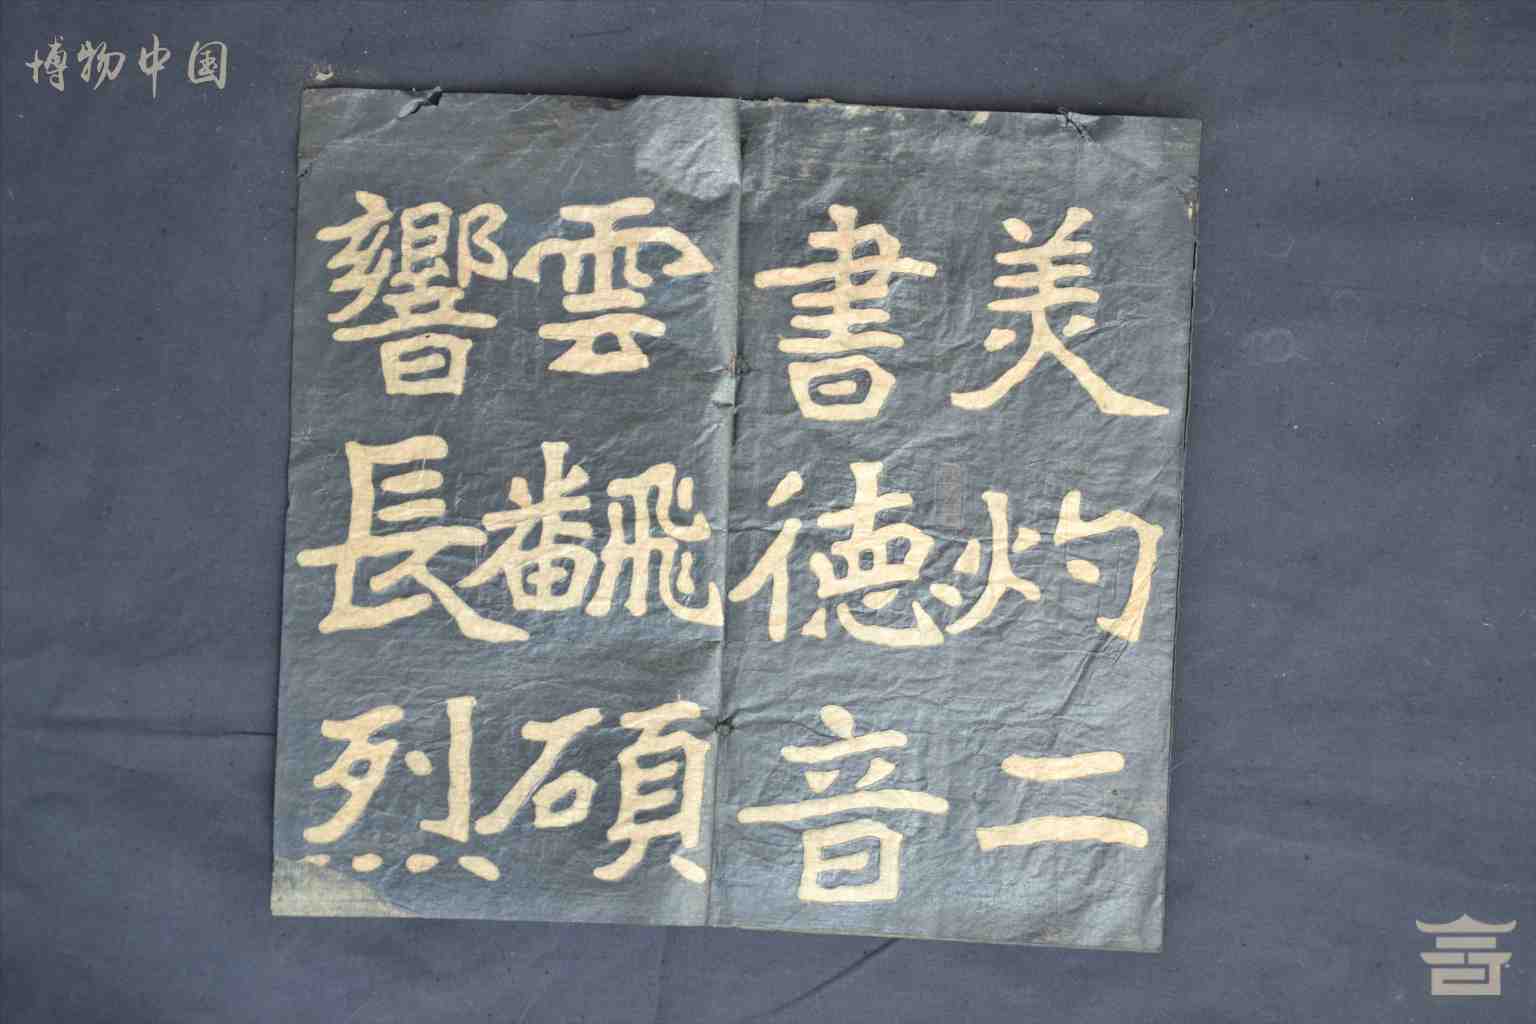 博物中国
美灼二
書德音
雲飜碩
響長烈